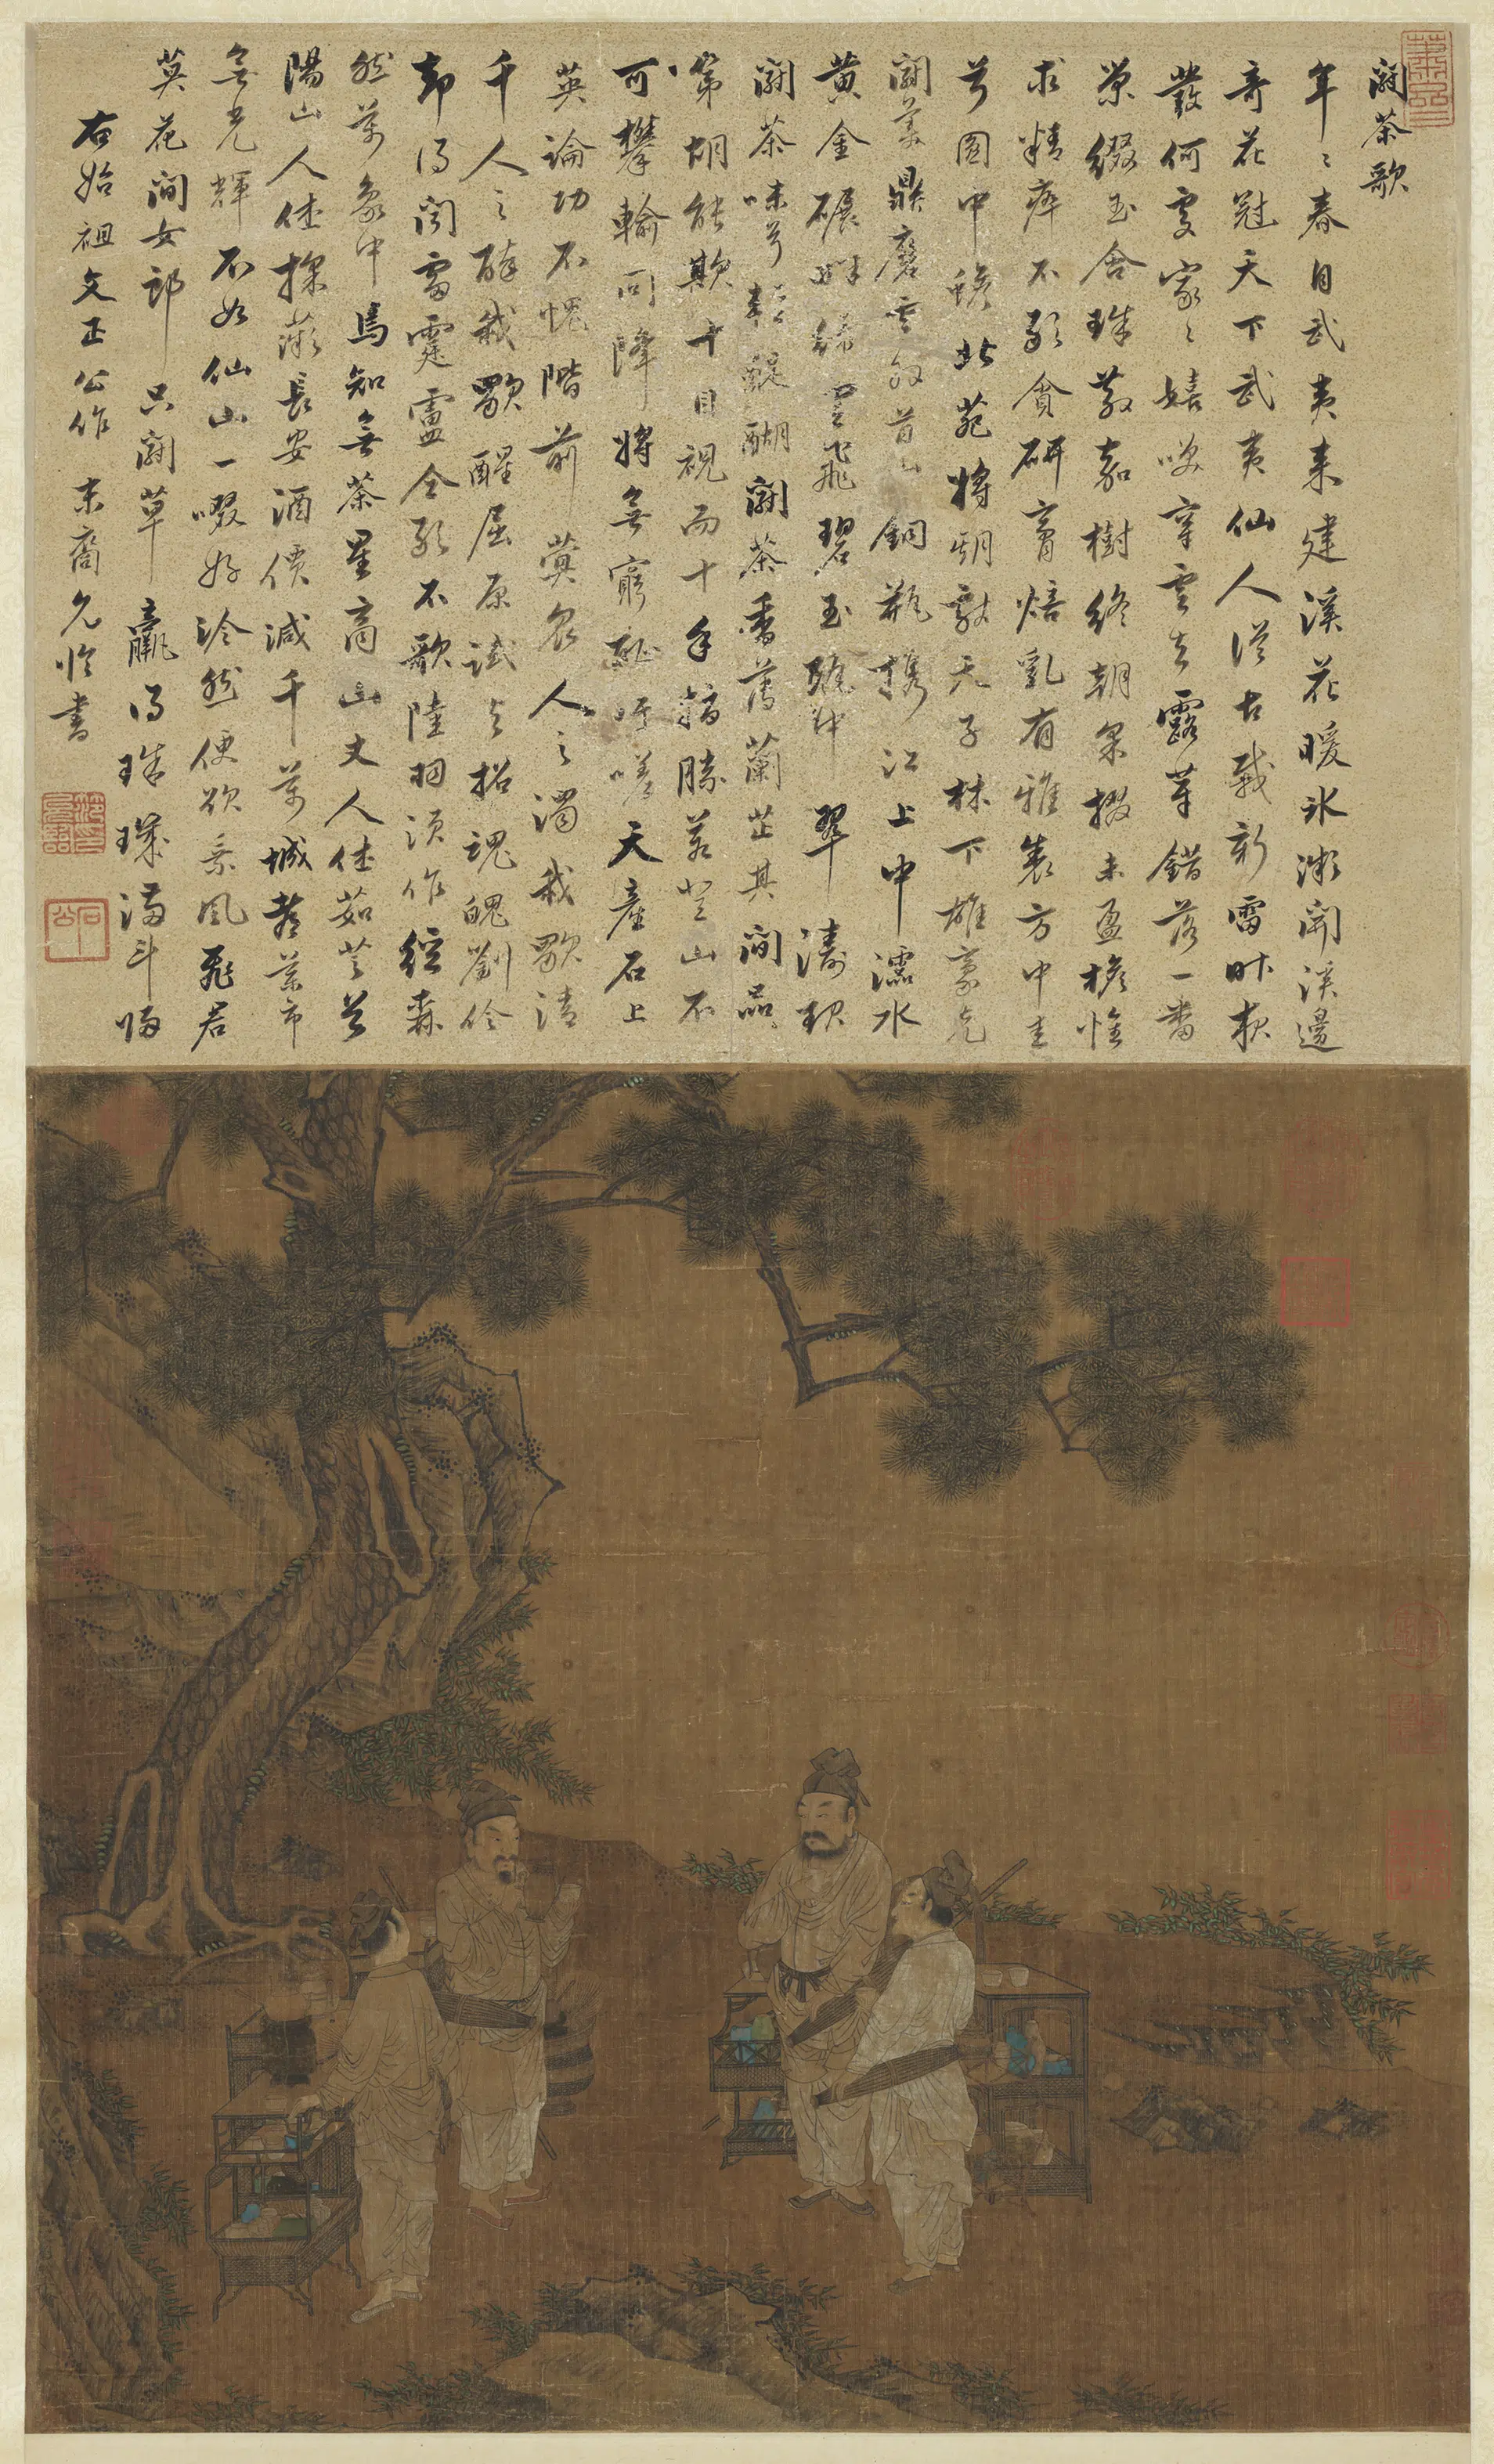 鬭茶歌
年〻春自武夷來建溪花暖氷微開溪邊
奇花冠天下武夷仙人從古栽新雷昨夜
發何處家〻嬉笑穿雲去露芽錯落一番
榮綴玉含珠散嘉樹終朝采掇未盈襜惟
求精粹不敢貪研膏焙乳有雅製方中圭
兮圓中蟾北苑將期獻天子林下雄豪先
鬭美鼎磨雲外首山銅瓶攜江上中濡水
黃金碾畔綠塵飛碧玉甌中翠濤起
鬭茶味兮輕醍醐鬭茶香薄蘭芷其間品
第胡能欺十目視而十手指勝若登山不
可攀輸同降將無窮恥吁嗟天產石上
英論功不愧階前蓂眾人之濁我歠清
千人之醉我歠醒屈原試與招魂魄劉伶
却得聞雷霆盧仝敢不歌陸羽須作經森
然萬象中焉知無茶星商山丈人休茹芝首
陽山人休採薇長安酒價減千萬城都藥市
無光輝不如仙山一啜好泠然便欲乘風飛君
莫花間女郎只鬭草贏得珠璣滿斗歸
右始祖文正公作 末裔允臨書